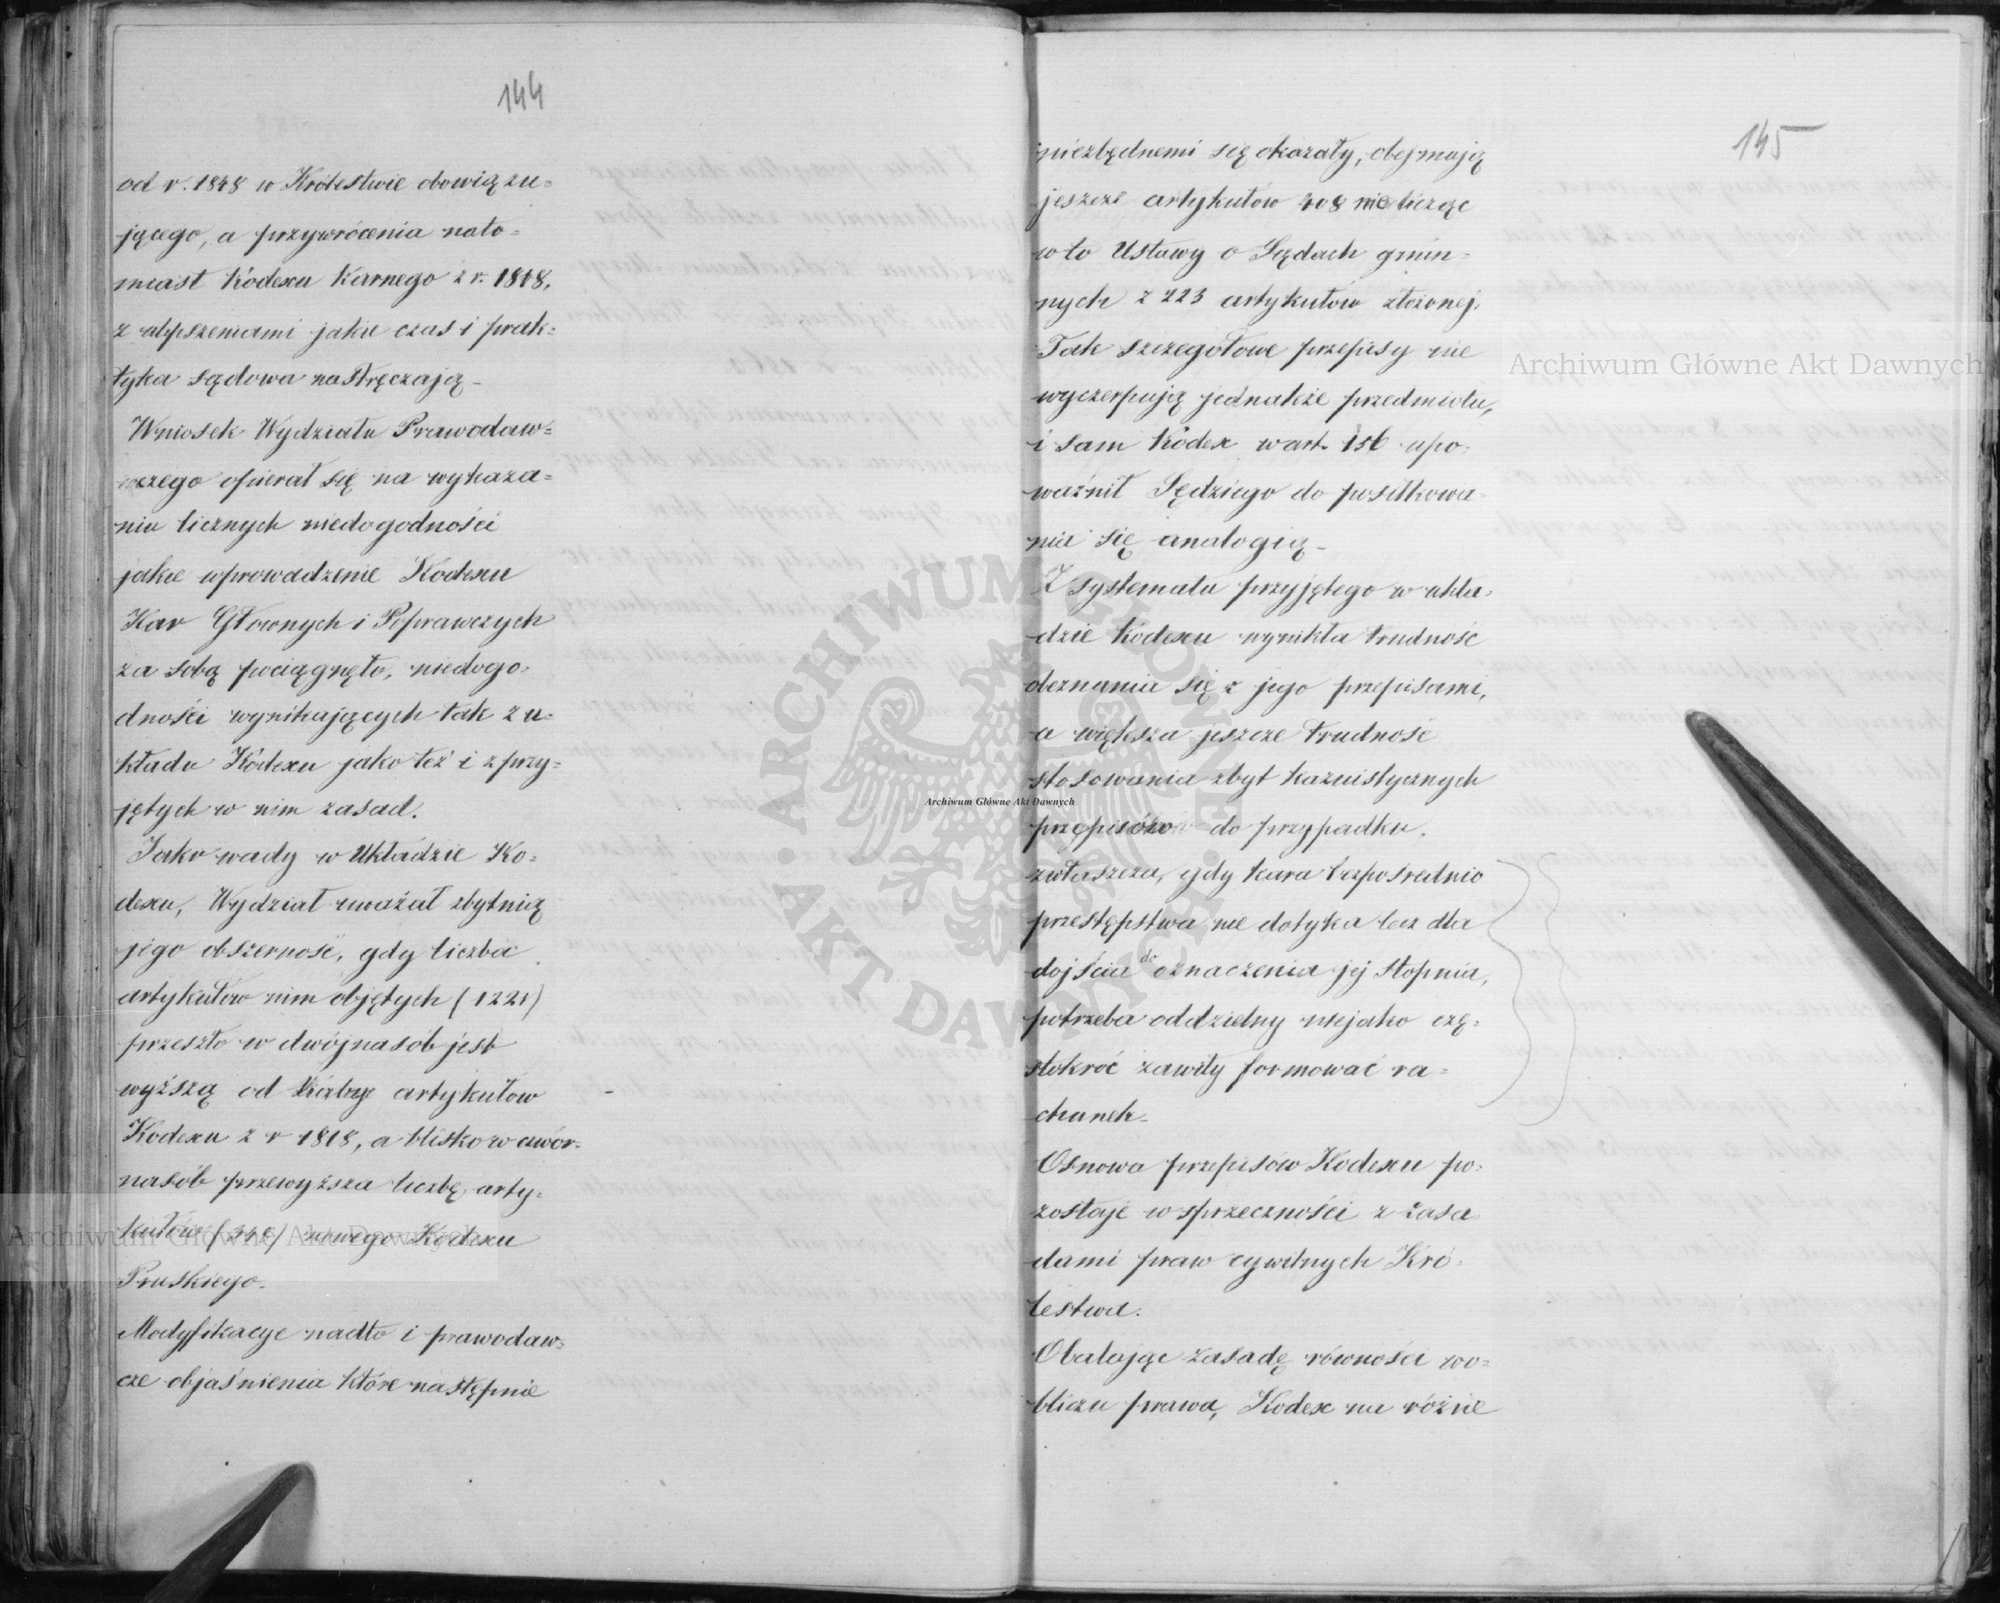 144
od r. 1848 w Królestwie obowiązu=
jącego, a przywrócenia nato=
miast Kodexu Karnego z r. 1818,
z ulepszeniami jakie czas i prak=
tyka sądowa nastręczają_
Wniosek Wydziału Prawodaw=
czego opierał się na wykaza=
niu licznych niedogodności
jakie wprowadzenie Kodexu
Kar Głownych i Poprawczych
za sobą pociągnęło, niedogo=
dności wynikających tak z u=
kładu Kodexu jako też i z przy=
jętych w nim zasad.
Jako wady w Układzie Ko=
dexu, Wydział uważał zbytnią
jego obszerność, gdy liczba
artykułów nim objętych (1221)
przeszło w dwójnasób jest
wyższą od liczby artykułów
Kodexu z r 1818, a blisko w czwór=
nasób przewyższa liczbę arty=
kułów nowego Kodexu
Pruskiego.
Modyfikacye nadto i prawodaw=
cze objaśnienia które następnie
145
niezbędnemi się okazały, obejmują
jeszcze artykułów 208 nie licząc
w to Ustawy o Sądach gmin=
nych z 223 artykułów złożonej.
Tak szczegółowe przepisy nie
wyczerpują jednakże przedmiotu,
i sam Kodex w art. 156 upo=
ważnił Sędziego do posiłkowa=
nia się analogią_
Z systematu przyjętego w ukła=
dzie Kodexu wynikła trudność
obeznania się z jego przepisami,
a większa jeszcze trudność
stosowania zbyt kazuistycznych
przepisów do przypadku,
zwłaszcza, gdy kara bezpośrednio
przestępstwa nie dotyka lecz dla
dojścia do oznaczenia jej stopnia,
potrzeba oddzielny niejako czę=
stokroć zawiły formować ra=
chunek_
Osnowa przepisów Kodexu po=
zostaje w sprzeczności z zasa
dami praw cywilnych Kró=
lestwa.
Obalając zasadę równości wo=
bliczu prawa, Kodex na różnie
Archiwum Główne Akt Dawnych
Archiwum Główne Akt Dawnych
Archiwum Główne Akt Dawnych
ARCHIWUM GŁÓWNE AKT DAWNYCH